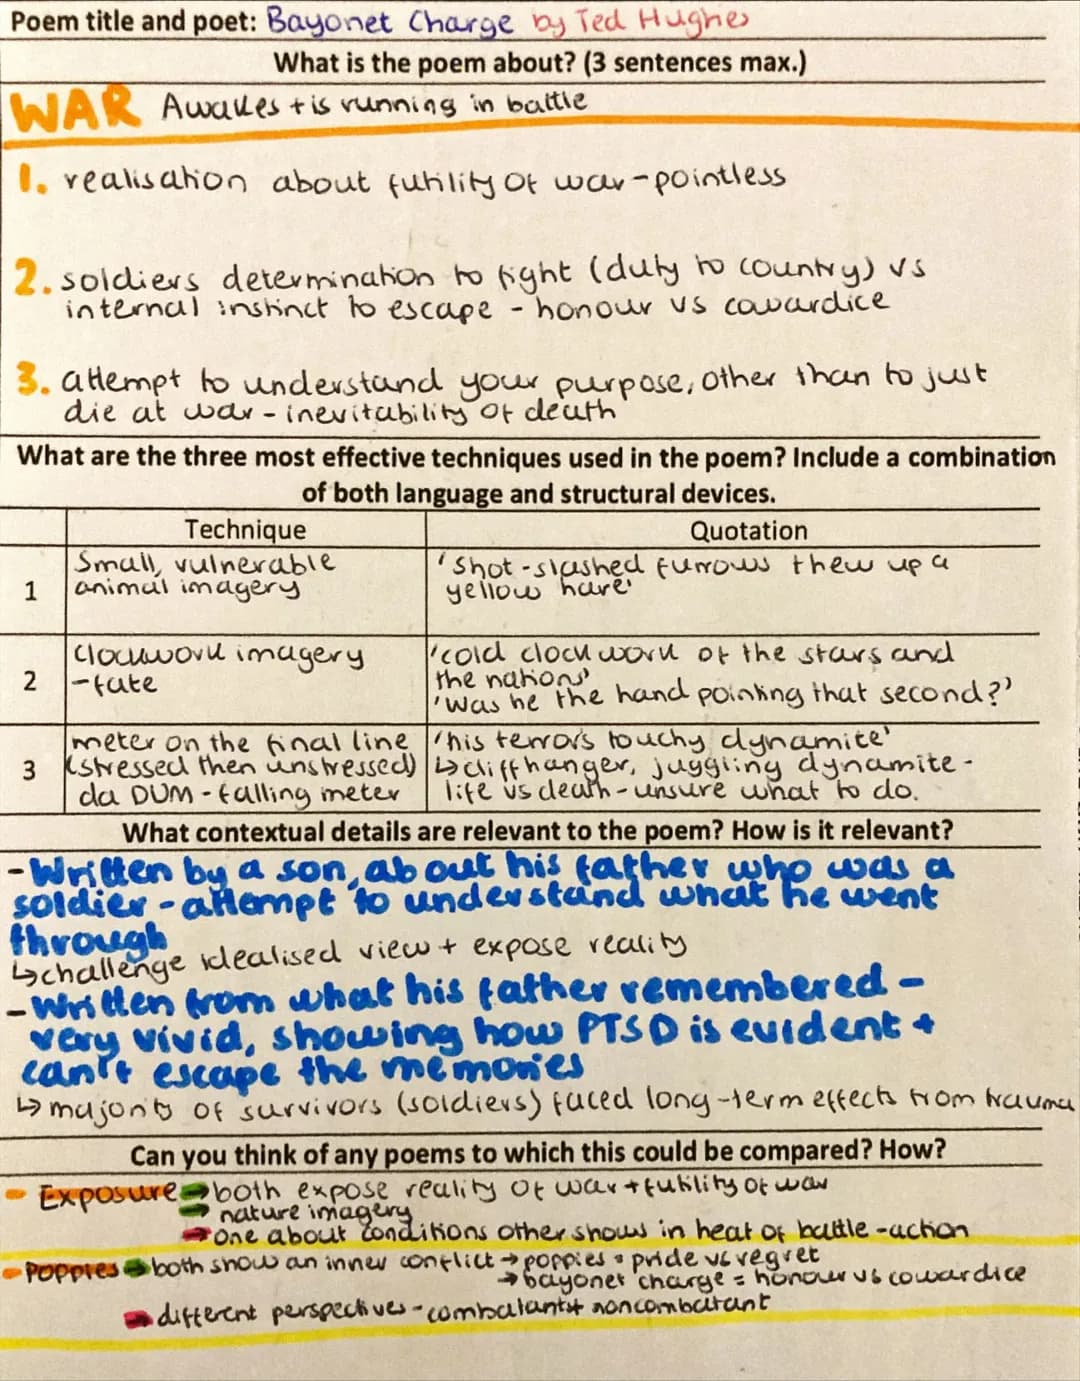 Poem title and poet: Bayonet Charge by Ted Hughes
What is the poem about? (3 sentences max.)
WAR Awakes + is running in battle
1. realisation about futility of war - pointless
2. soldiers determination to fight (duty to country) vs
internal instinct to escape - honour vs cowardice
3. attempt to understand your purpose, other than to just
die at war - inevitability of death
What are the three most effective techniques used in the poem? Include a combination
of both language and structural devices.
Technique Quotation
1 Small, vulnerable
animal imagery
'Shot-slashed furrows thew up a
yellow hare'
2 Clockwork imagery
- fate
'cold clockwork of the stars and
the nations'
'Was he the hand pointing that second?'
3 meter on the final line
(stressed then unstressed)
da DUM - falling meter
'his terrors touchy dynamite'
↳ cliffhanger, juggling dynamite -
life vs death - unsure what to do.
What contextual details are relevant to the poem? How is it relevant?
- Written by a son, about his father who was a
soldier - attempt to understand what he went
through
↳ challenge idealised view + expose reality
- Written from what his father remembered -
very vivid, showing how PTSD is evident +
can't escape the memories
↳ majority of survivors (soldiers) faced long-term effects from trauma
Can you think of any poems to which this could be compared? How?
- Exposure → both expose reality of war + futility of war
→ nature imagery
→ one about conditions other shows in heat of battle - action
- Poppies → both show an inner conflict → poppies = pride vs regret
→ bayonet charge = honour vs cowardice
→ different perspectives - combatant + noncombatant